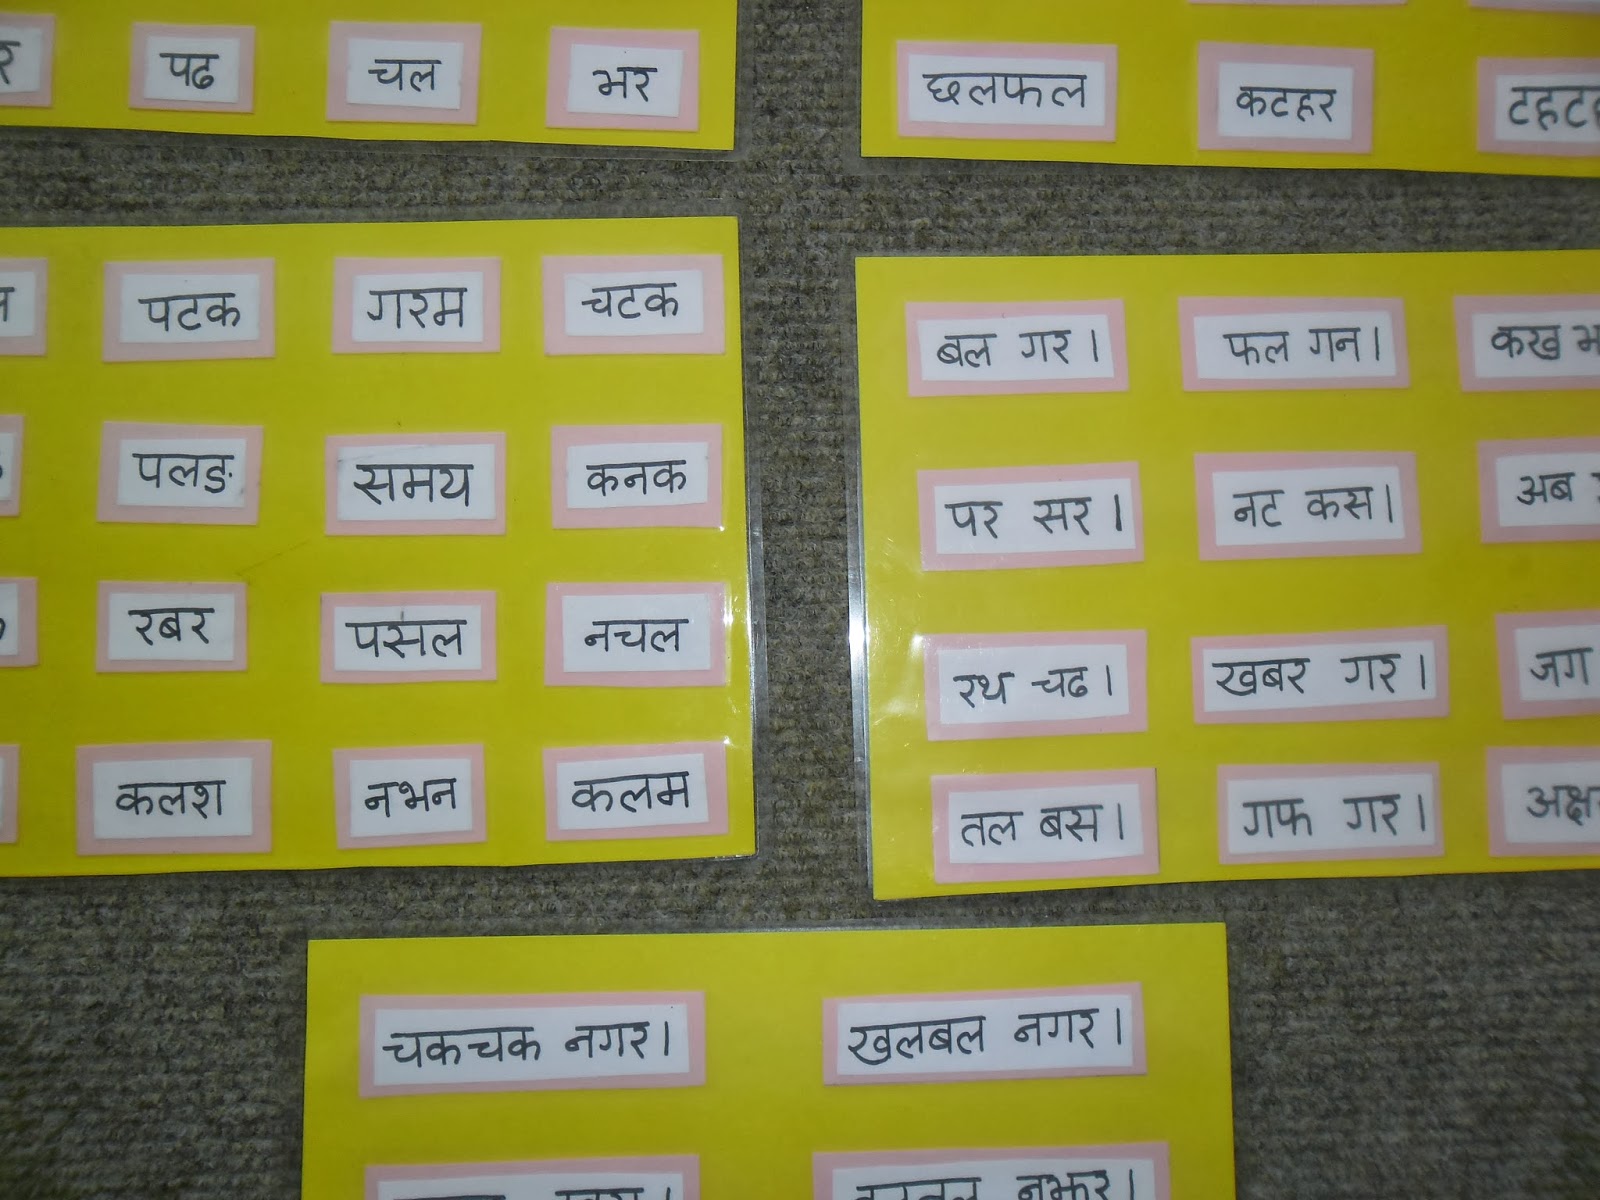 पढ चल भर
छलफल कटहर
पटक गरम चटक
पलङ समय कनक
रबर पसल नचल
कलश नभन कलम
बल गर। फल गन। कख
पर सर। नट कस। अब
रथ चढ। खबर गर। जग
तल बस। गफ गर।
चकचक नगर। खलबल नगर।
नझर।